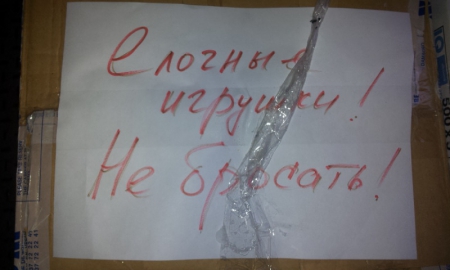 Елочные
игрушки!
Не бросать!